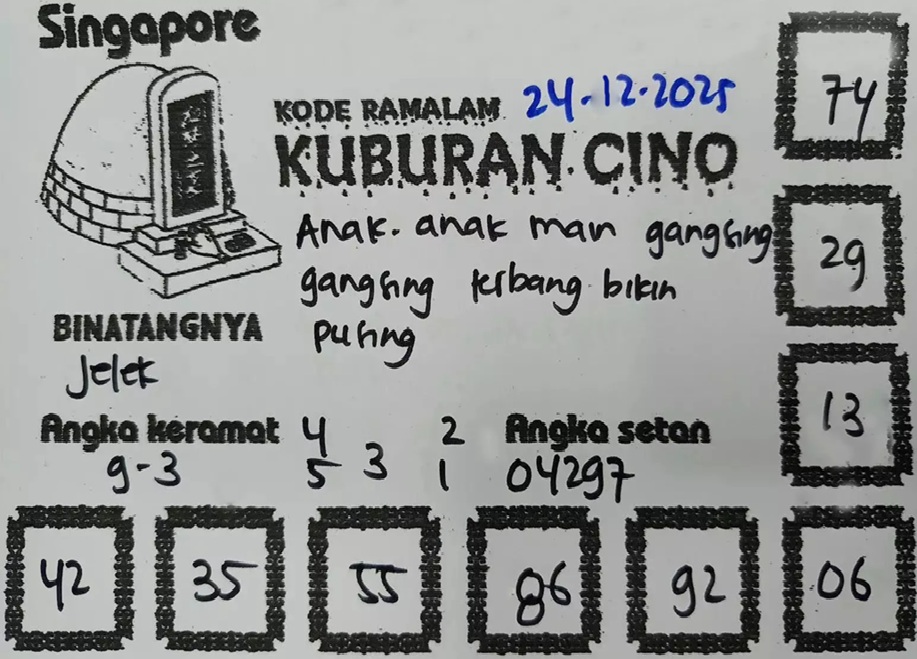 Singapore
KODE RAMALAM 24.12.2025
KUBURAN CINO
Anak. anak main gangsing
gangsing terbang bikin
pusing
BINATANGNYA
Jelek
Angka keramat
9-3
4 2
5 3 1
Angka setan
04297
74
29
13
42 35 55 86 92 06